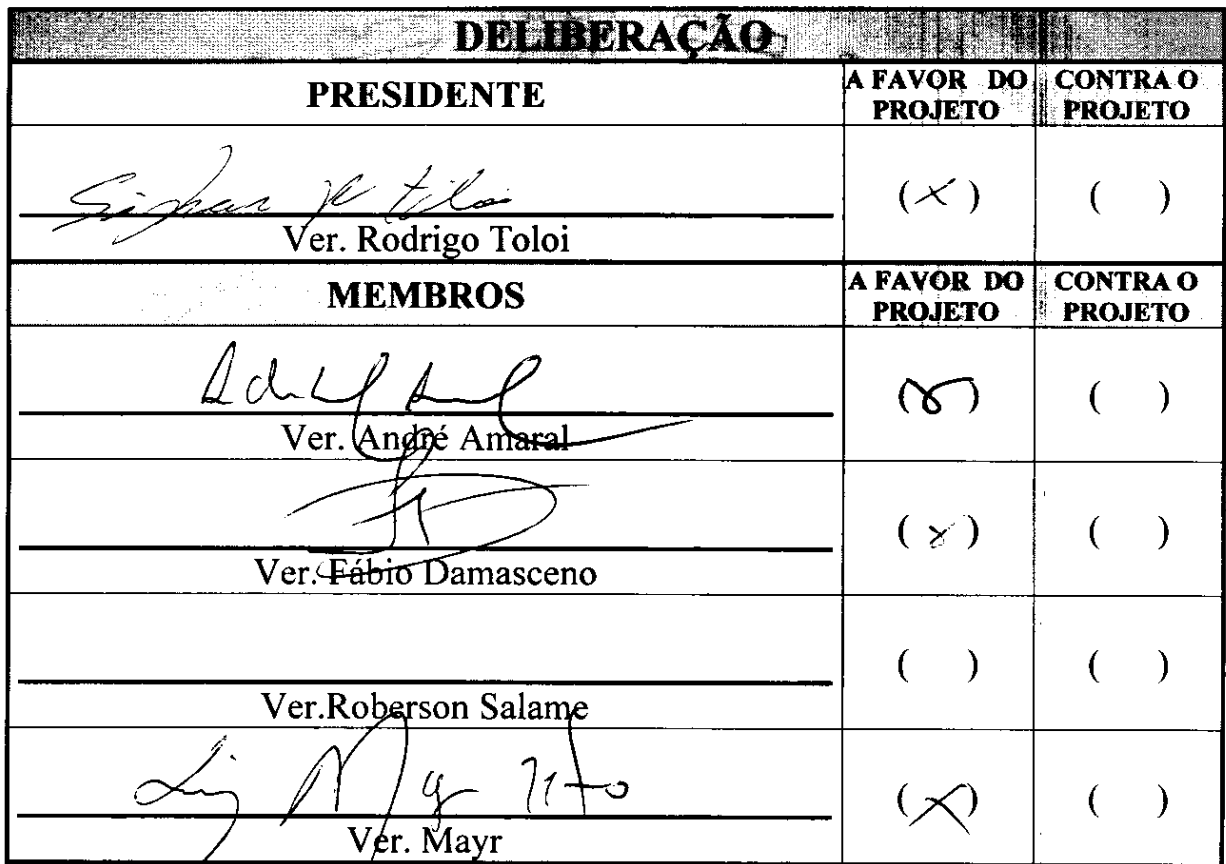 DELIBERAÇÃO
PRESIDENTE
A FAVOR DO
PROJETO
CONTRA O
PROJETO
Ver. Rodrigo Toloi
(X)
( )
MEMBROS
A FAVOR DO
PROJETO
CONTRA O
PROJETO
Ver. André Amaral
(X)
( )
Ver. Fábio Damasceno
(X)
( )
Ver.Roberson Salame
( )
( )
Ver. Mayr
(X)
( )